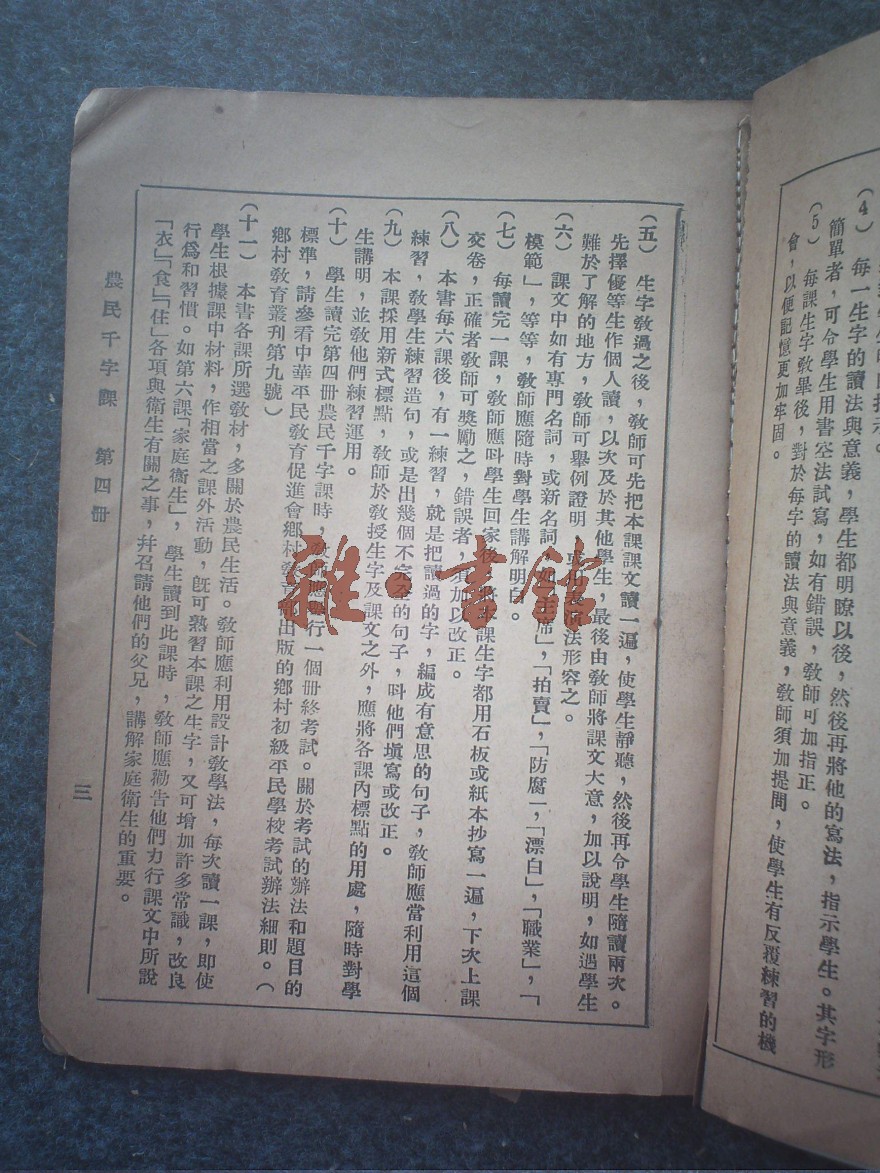 (4) 每一生字的讀法與意義，學生都明瞭以後，然後再將他的寫法，指示學生。其字形
簡單者，可令學生用書空法試寫，如有錯誤，敎師可加指正。
(5) 每課生字敎畢後，對於每字的讀法與意義，敎師須加提問，使學生有反覆練習的機
會，以便記憶更加牢固。
(五) 生字敎過之後，敎師可先把本課課文讀一遍，使學生靜聽，然後再令學生隨讀兩次。
先擇優等生作個人讀，以次及於其他學生，最後由敎師將課文大意，加以說明，如遇學生
難於了解的地方，敎師可舉例證明，法形容之。
(六) 課文中如有專門名詞，或新名詞，如「主席」，「拍賣」，「防腐」，「漂白」，「職業」，「
模範」，等等，敎師應隨時對學生講解明白。
(七) 每讀完一課，敎師應呌學生回家後，將本課生字都用石板或紙本抄寫一遍，下次上課
交卷，正確者敎師可獎勵之，錯誤者，須加以改正。
(八) 本書每六課後，有一練習，就是把讀過的字，編成有意思的句子，敎師應當利用這個
練習，敎學生練習造句，或是出幾個不完全的句子，呌他們填寫或改正。
(九) 本課採用新式標點，敎師於敎授生字及課文之外，應將各課內標點的用處，隨時對學
生講明，並敎他們練習運用。
(十) 學生讀完第四册農民千字課時，敎師應舉行一個册終考試。關於考試的辦法和題目的
標準，請參看中華平民敎育促進會鄉村敎育部出版的鄉村初級平民學校考試辦法細則。(
鄉村敎育叢刊第九號)
(十一) 本書各課所選敎材，多關於農民生活。敎師應利用設計敎學法，每次讀一課，即使
學生根據課中材料，作相當之課外活動，旣可熟習本課之生字，又可增加許多常識，改良
行爲和習慣。如第六課「家庭衞生」，學生讀到此課時，敎師應勸告他們力行課文中所說
「衣」「食」「住」各項與衛生有關之事，幷召請他們的父兄，講解家庭衛生的重要。
農民千字課 第四册 三
雜·書館